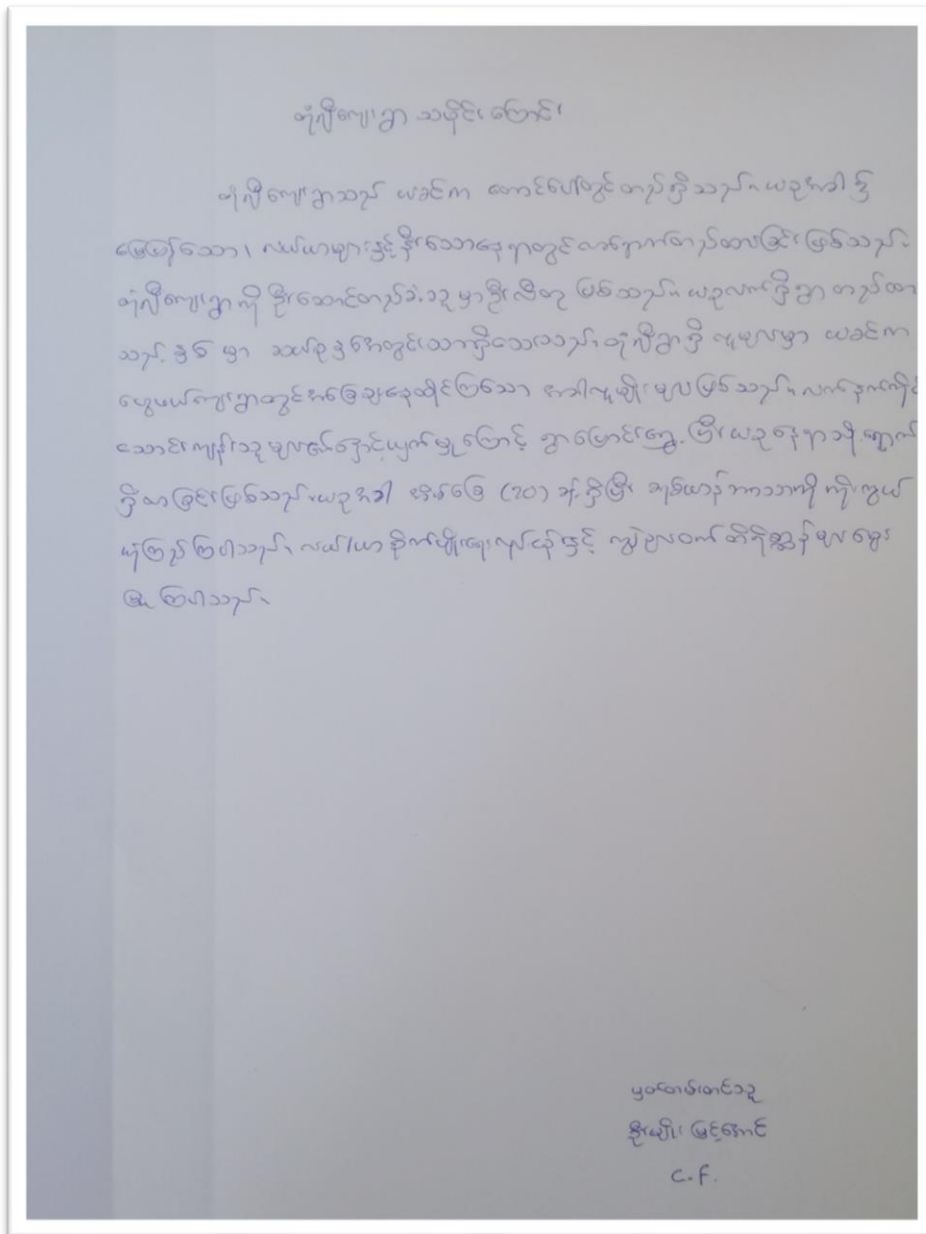 တုံလီကျေးရွာ သမိုင်းကြောင်း
တုံလီကျေးရွာသည် ယခင်က တောင်ပေါ်တွင်တည်ရှိသည်။ ယခုအခါ ၌
မြေပြန့်သော၊ လယ်ယာများနှင့်နီးသောနေရာတွင်လာရောက်တည်ထားခြင်းဖြစ်သည်။
တုံလီကျေးရွာကို ဦးဆောင်တည်ခဲ့သူမှာဦးလီတု ဖြစ်သည်။ ယခုလက်ရှိရွာတည်ထာ
သည့်နှစ်မှာ ဆယ်စုနှစ်အတွင်းသာရှိသေးသည်။ တုံလီရွာရှိလူများမှာ ယခင်က
ကျေးရွာတွင်အခြေချနေထိုင်ကြသော အခါလူမျိုးများဖြစ်သည်။ လက်နက်ကိုင်
သောင်းကျန်းသူများ၏နှောင့်ယှက်မှုကြောင့် ရွာပြောင်းရွှေ့ပြီးယခုနေရာသို့ရောက်
ရှိလာခြင်းဖြစ်သည်။ ယခုအခါ အိမ်ခြေ (20) ခန့်ရှိပြီး ခရစ်ယာန်ဘာသာကိုကိုးကွယ်
ယုံကြည်ကြပါသည်။ လယ်/ယာစိုက်ပျိုးရေးလုပ်ငန်းနှင့် ကျွဲ၊နွား၊ဝက်တိရိစ္ဆာန်များမွေး
မြူကြပါသည်။
မှတ်တမ်းတင်သူ
ဦးမျိုးမြင့်အောင်
C.F.